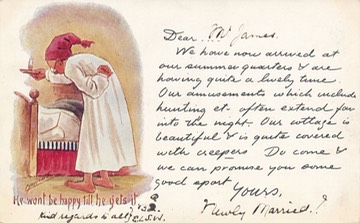 Dear Mr James.
We have now arrived at
our summer quarters & are
having quite a lively time.
Our amusements which include
hunting et- often extend far
into the night. Our cottage is
beautiful & is quite covered
with creepers Do come &
we can promise you some
good sport
Yours,
Newly Married!
He wont be happy till he gets it
Kind regards to all